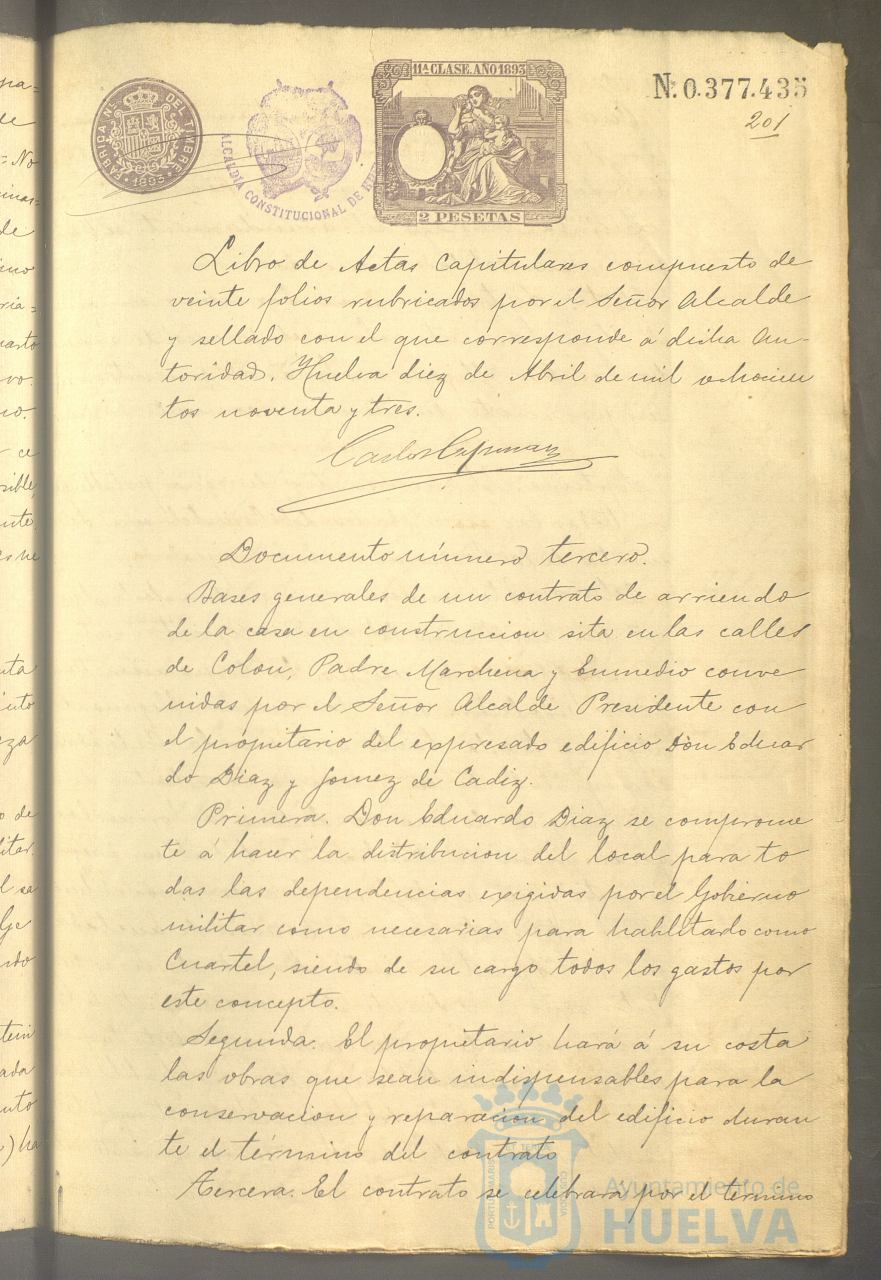 FABRICA NL. DEL TIMBRE
1893
ALCALDÍA CONSTITUCIONAL DE
11ª CLASE. AÑO 1893
2 PESETAS
N. 0.377.435
201
Libro de Actas Capitulares compuesto de
veinte folios rubricados por el Señor Alcalde
y sellado con el que corresponde á dicha Au-
toridad. Huelva diez de Abril de mil ochocien
tos noventa y tres.
Documento número tercero.
Bases generales de un contrato de arriendo
de la casa en construccion sita en las calles
de Colon, Padre Marchena y Enmedio conve
nidas por el Señor Alcalde Presidente con
el propietario del expresado edificio Don Eduar
do Diaz y Gomez de Cadiz.
Primera. Don Eduardo Diaz se comprome
te á hacer la distribucion del local para to
das las dependencias exigidas por el Gobierno
militar como necesarias para habilitarlo como
Cuartel, siendo de su cargo todos los gastos por
este concepto.
Segunda. El propietario hará á su costa
las obras que sean indispensables para la
conservacion y reparacion del edificio duran
te el término del contrato
Tercera. El contrato se celebrará por el termino
Ayuntamiento de
HUELVA